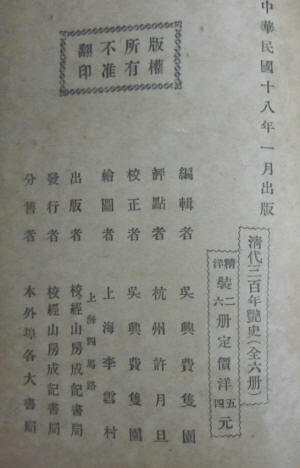 中華民國十八年一月出版
清代三百年艷史(全六册)
精裝二册定價洋五元
洋裝六册定價洋四元
編輯者 吳興費隻園
評點者 杭州許月旦
校正者 吳興費隻園
繪圖者 上海李雲村
上海四馬路
出版者 校經山房成記書局
發行者 校經山房成記書局
分售者 本外埠各大書局
版權
所有
不准
翻印